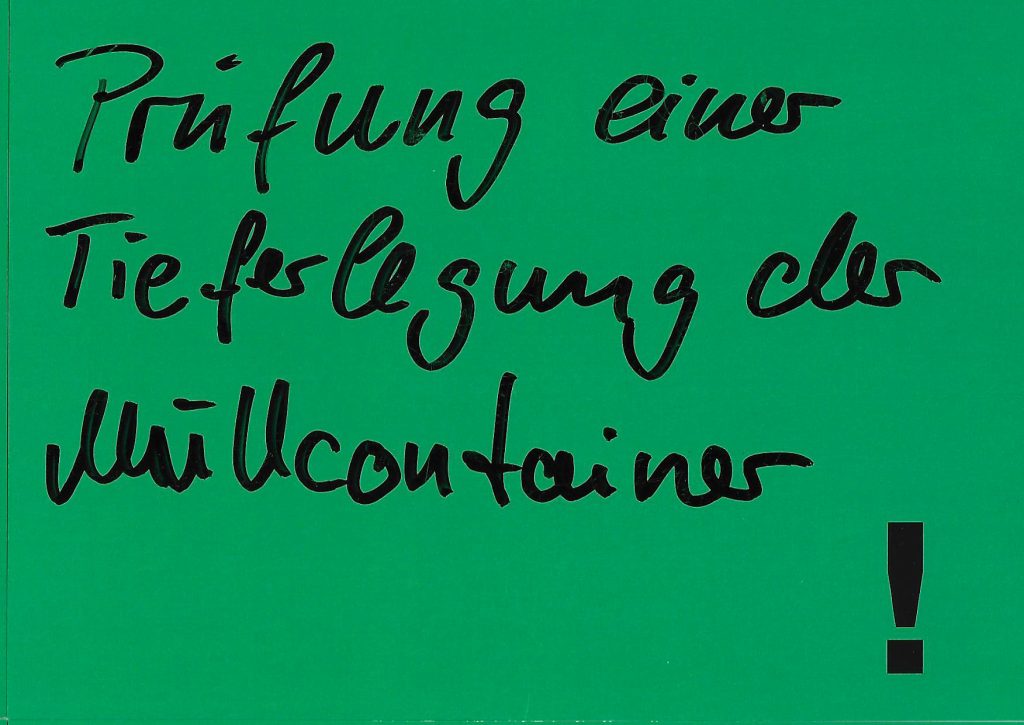 Prüfung einer
Tieferlegung der
Müllcontainer
!